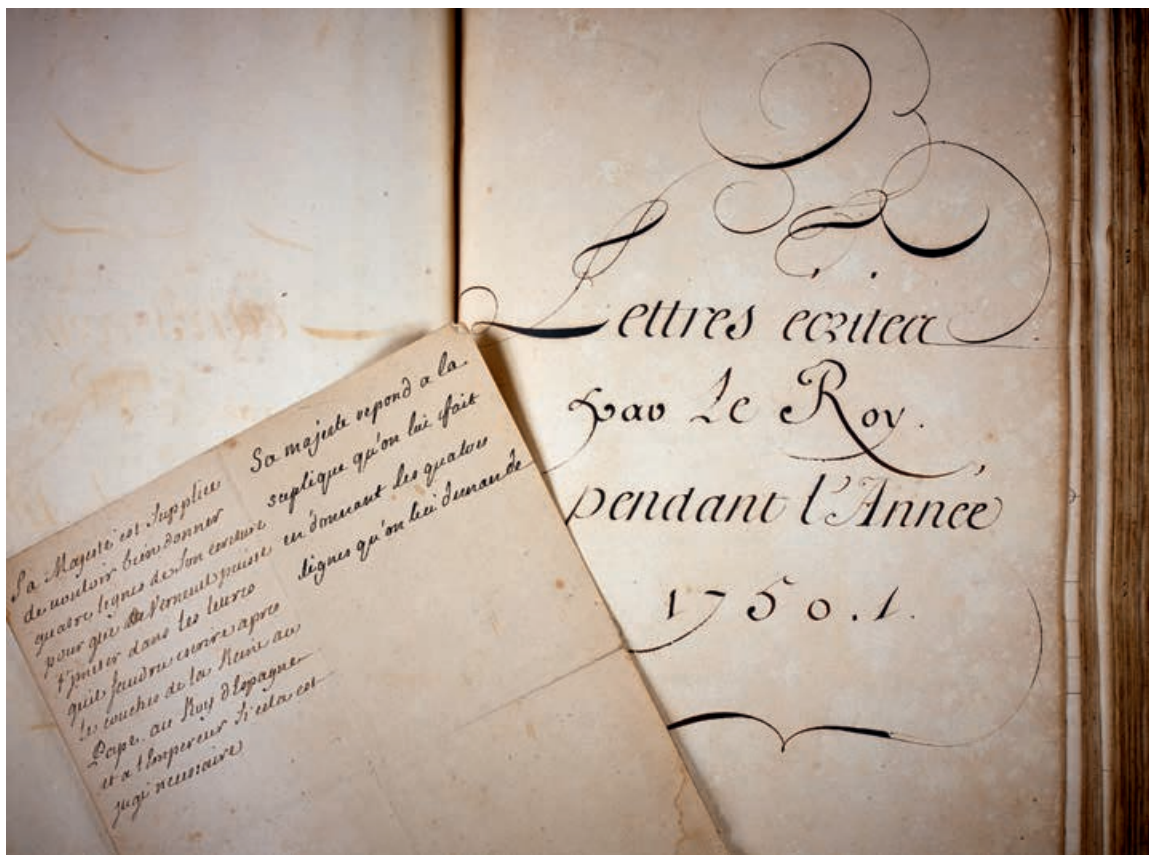 Lettres écrites
par Le Roy.
pendant l'Année
1750.1.
Sa Majesté est Supplice
de vouloir bien donner
quatre lignes de Son ecriture
pour que de Verneuil puisse
l'jmiter dans les lettres
qu'il faudra ecrire apres
les couches de la Reine au
Pape au Roy d'Espagne
et a l'Empereur Si cela est
jugé necessaire
Sa majesté repond a la
suplique qu'on lui fait
en donnant les quatres
lignes qu'on lui demande